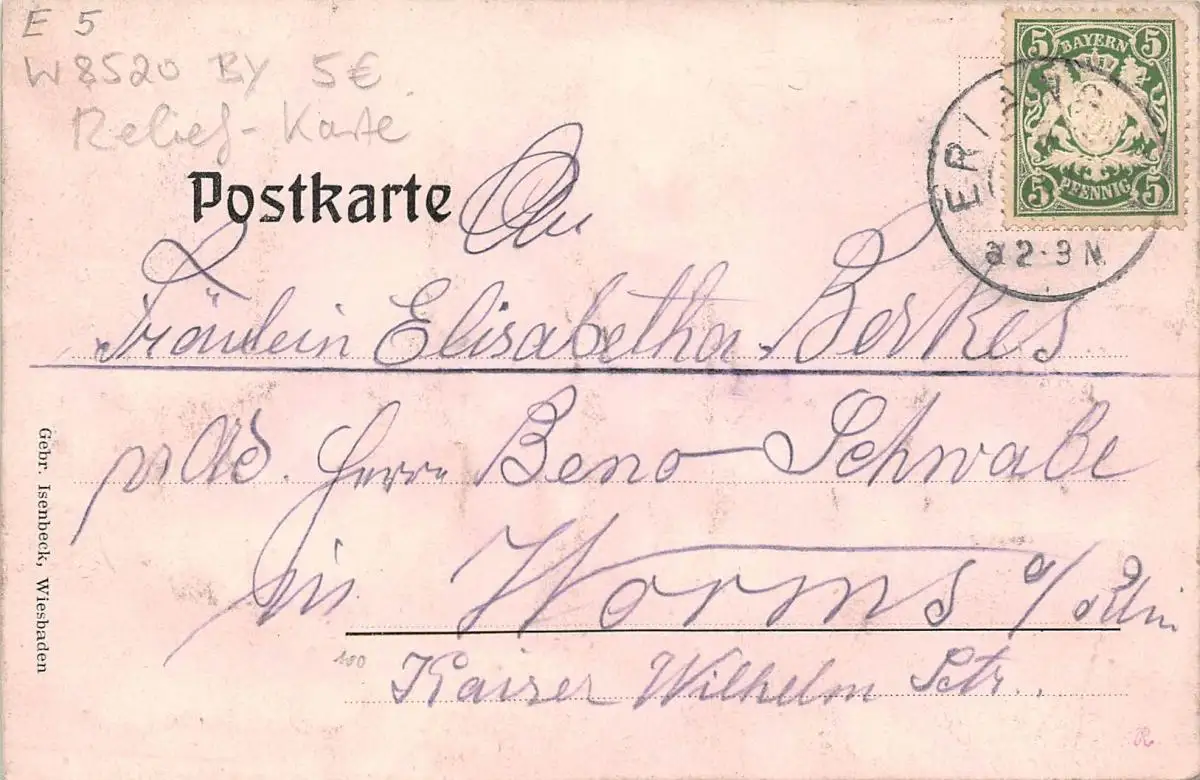 E 5
W 8520 BY 5€
Relief-Karte
Postkarte
An
Fräulein Elisabetha Berkes
p. Ad. Herrn Beno Schwabe
in Worms a/Rhein
100
Kaiser Wilhelm Str.
Gebr. Isenbeck, Wiesbaden
5 BAYERN 5
5 PFENNIG 5
ERL
2-3 N.
R